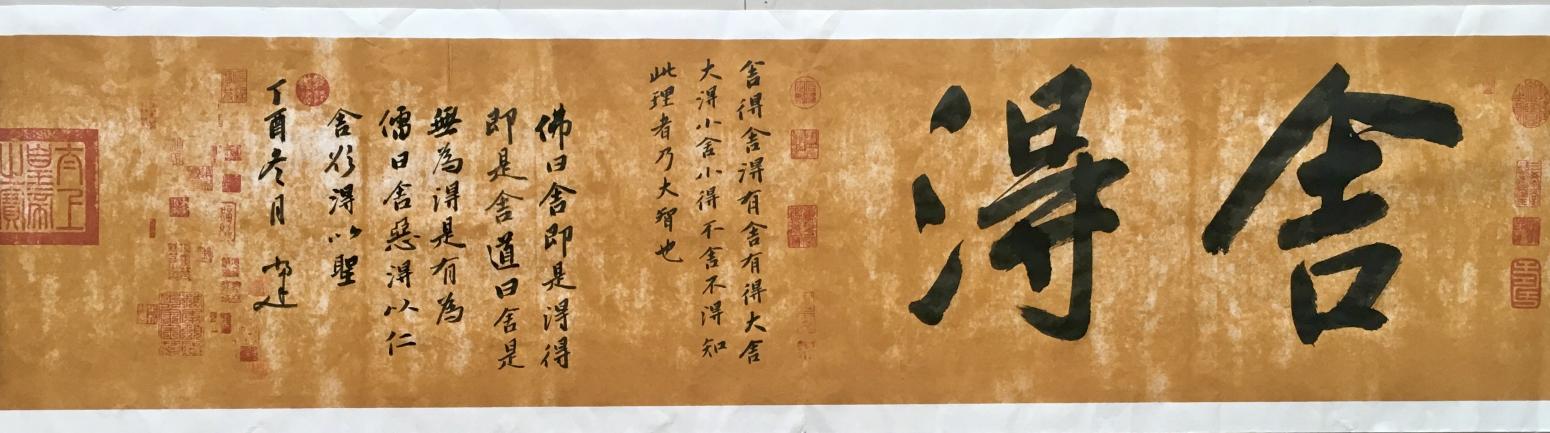 舍得
舍得舍得有舍有得大舍
大得小舍小得不舍不得知
此理者乃大智也
佛曰舍即是得得
即是舍道曰舍是
無為得是有為
儒曰舍惡得以仁
舍欲得以聖
丁酉冬月
太上
皇帝
之寶